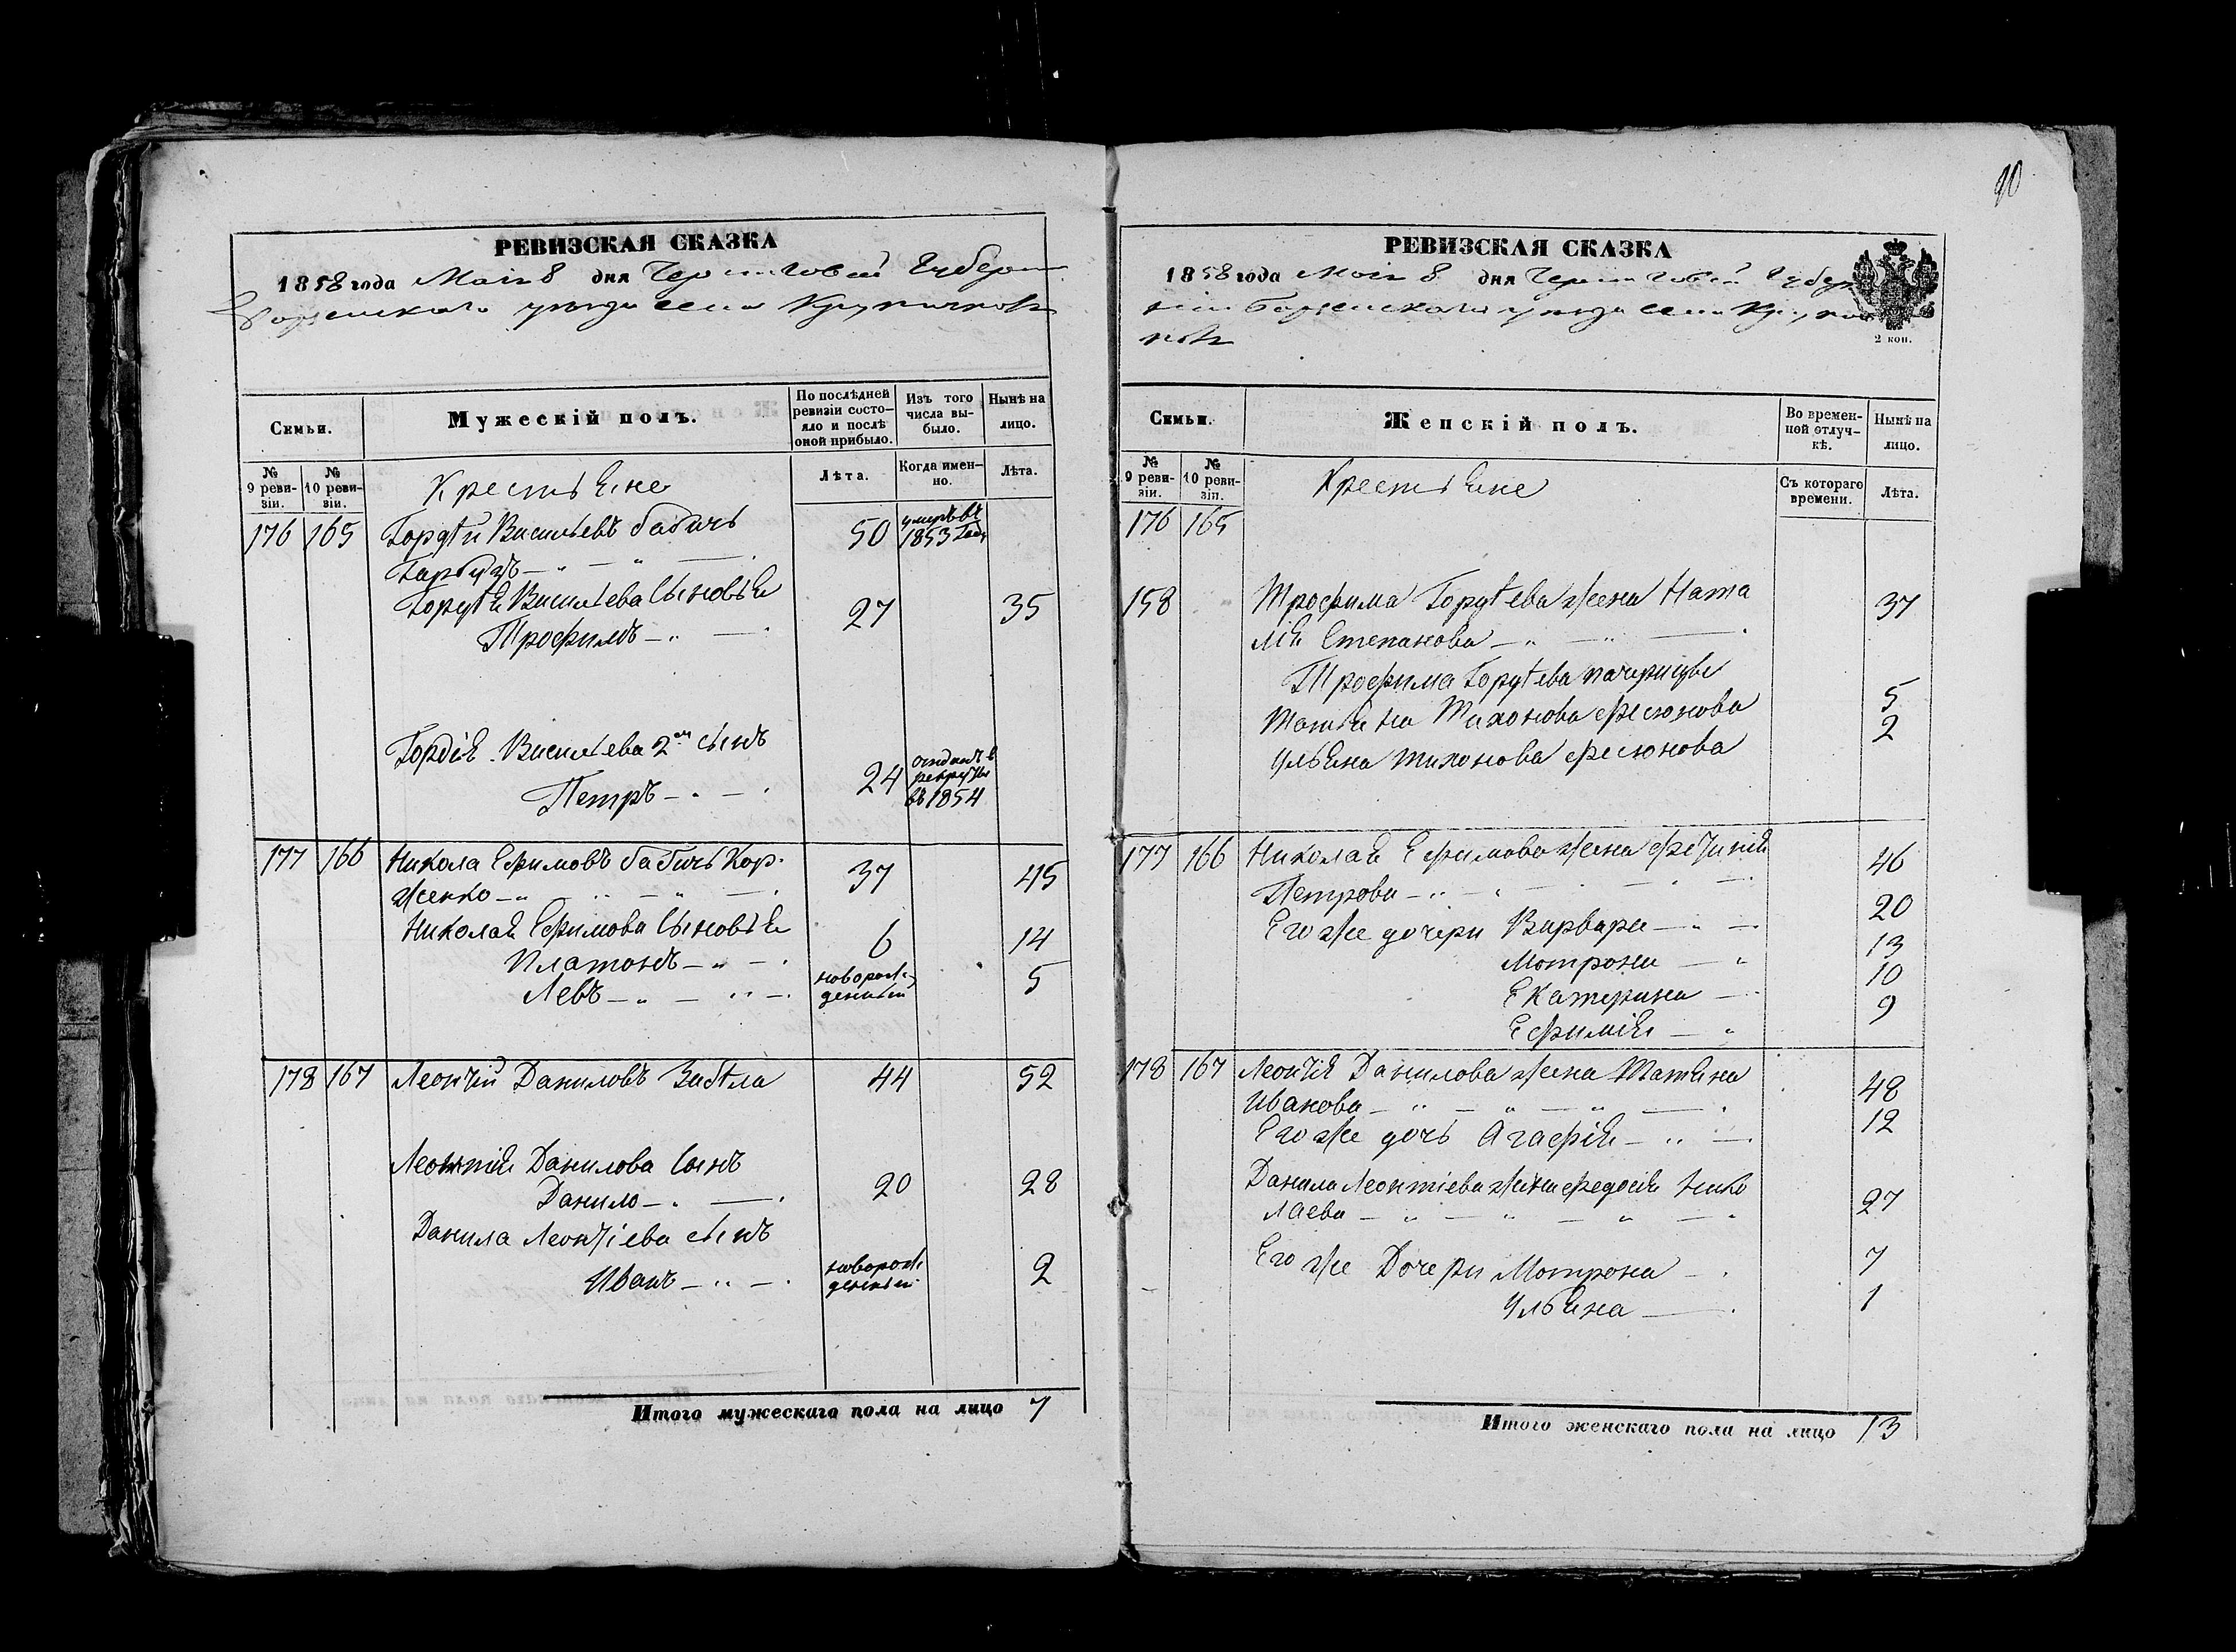 РЕВИЗСКАЯ СКАЗКА
1858 года Мая 8 дня Черниговской Губерни
Борзенского уезда села
Семьи.
Мужескій полъ.
По послѣдней ревизіи состо-
яло и послѣ
оной прибыло.
Изъ того
числа вы-
было.
Нынѣ на
лицо.
№
9 реви-
зіи.
№
10 реви-
зіи.
Крестьяне
Лѣта.
Когда имен-
но.
Лѣта.
176 165 Гордѣй Васильевъ бабичь 50 умеръ въ
1853 году
Гарбузъ
Гордѣя Васильева сыновья
Трофимъ 27 35
Гордія Васильева 2й сынъ
Петръ 24 отданъ в
рекруты
въ 1854
177 166 Никола Ефимовъ бабичь Кор-
женко 37 45
Николая Ефимова сыновья
Платонъ 6 14
Левъ новорож-
денный 5
178 167 Леонтій Даниловъ Забѣла 44 52
Леонтія Данилова сынъ
Данило 20 28
Данила Леонтіева сынъ
Иванъ новорож
денный 2
Итого мужескаго пола на лицо 7
90
РЕВИЗСКАЯ СКАЗКА
1858 года Мая 8 дня Черниговской Губер
нии Борзенского уезда села
2 коп.
Семьи.
Женскій полъ.
Во времен-
ной отлуч-
кѣ.
Нынѣ на
лицо.
№
9 реви-
зіи.
№
10 реви-
зіи.
Крестьяне
Съ котораго
времени.
Лѣта.
176 165
158 Трофима Гордѣева жена Ната
лія Степанова 37
Трофима Гордѣева падчерицы
Татьяна Тихонова Фесюнова 5
Ульяна Тихонова Фесюнова 2
177 166 Николая Ефимова жена
Петрова 46
Его же дочери Варвара 20
Мотрона 13
Екатерина 10
Ефимія 9
178 167 Леонтія Данилова жена Татьяна
Иванова 48
Его же дочь Агафія 12
Данила Леонтіева жена Федосія Нико
лаева 27
Его же Дочери Мотрона 7
Ульяна 1
Итого женскаго пола на лицо 13